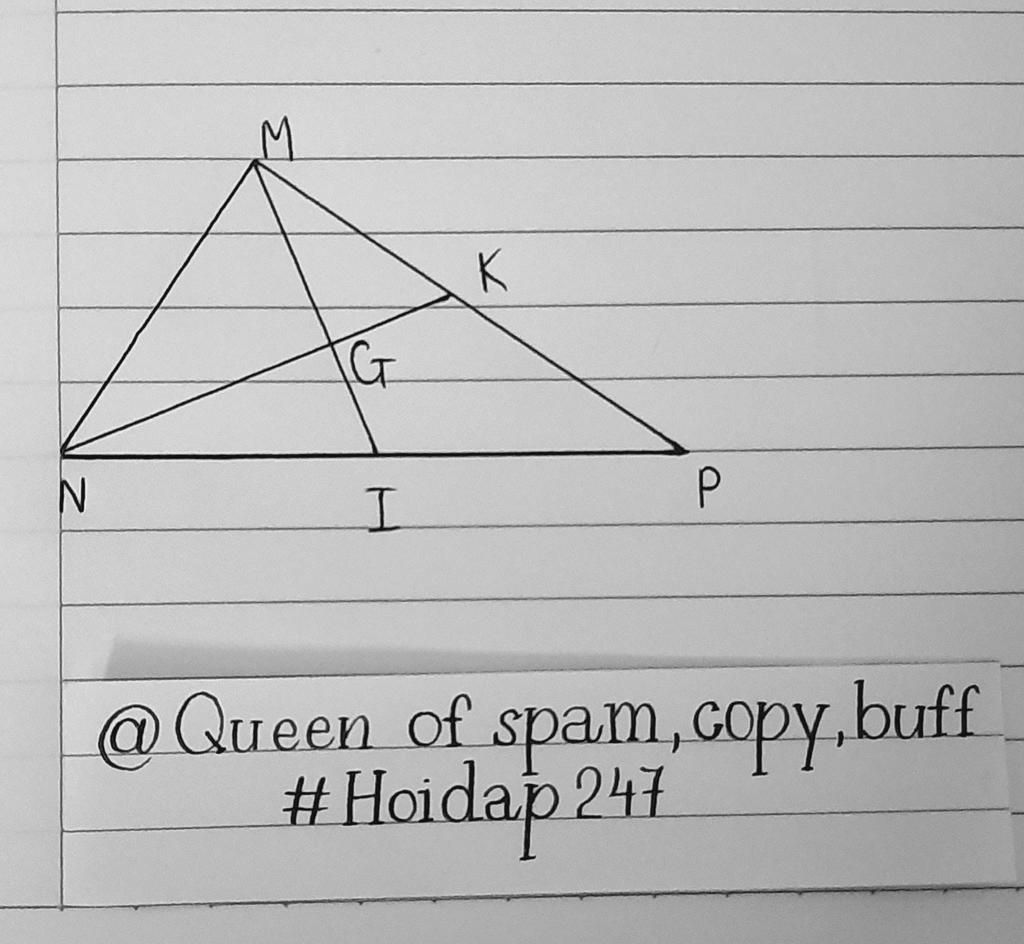 M
K
G
N
I
P
@Queen of spam, copy, buff
#Hoidap247